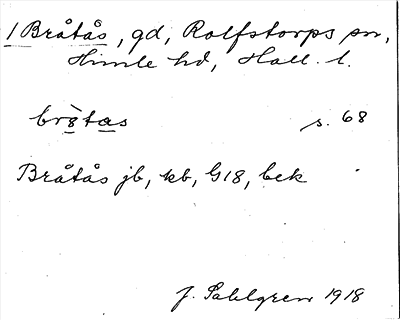 1 Bråtås, gd, Rolfstorps sn,
Himle hd, Hall. l.
s. 68
Bråtås jb, kb, G18, bek
J. Sahlgren 1918